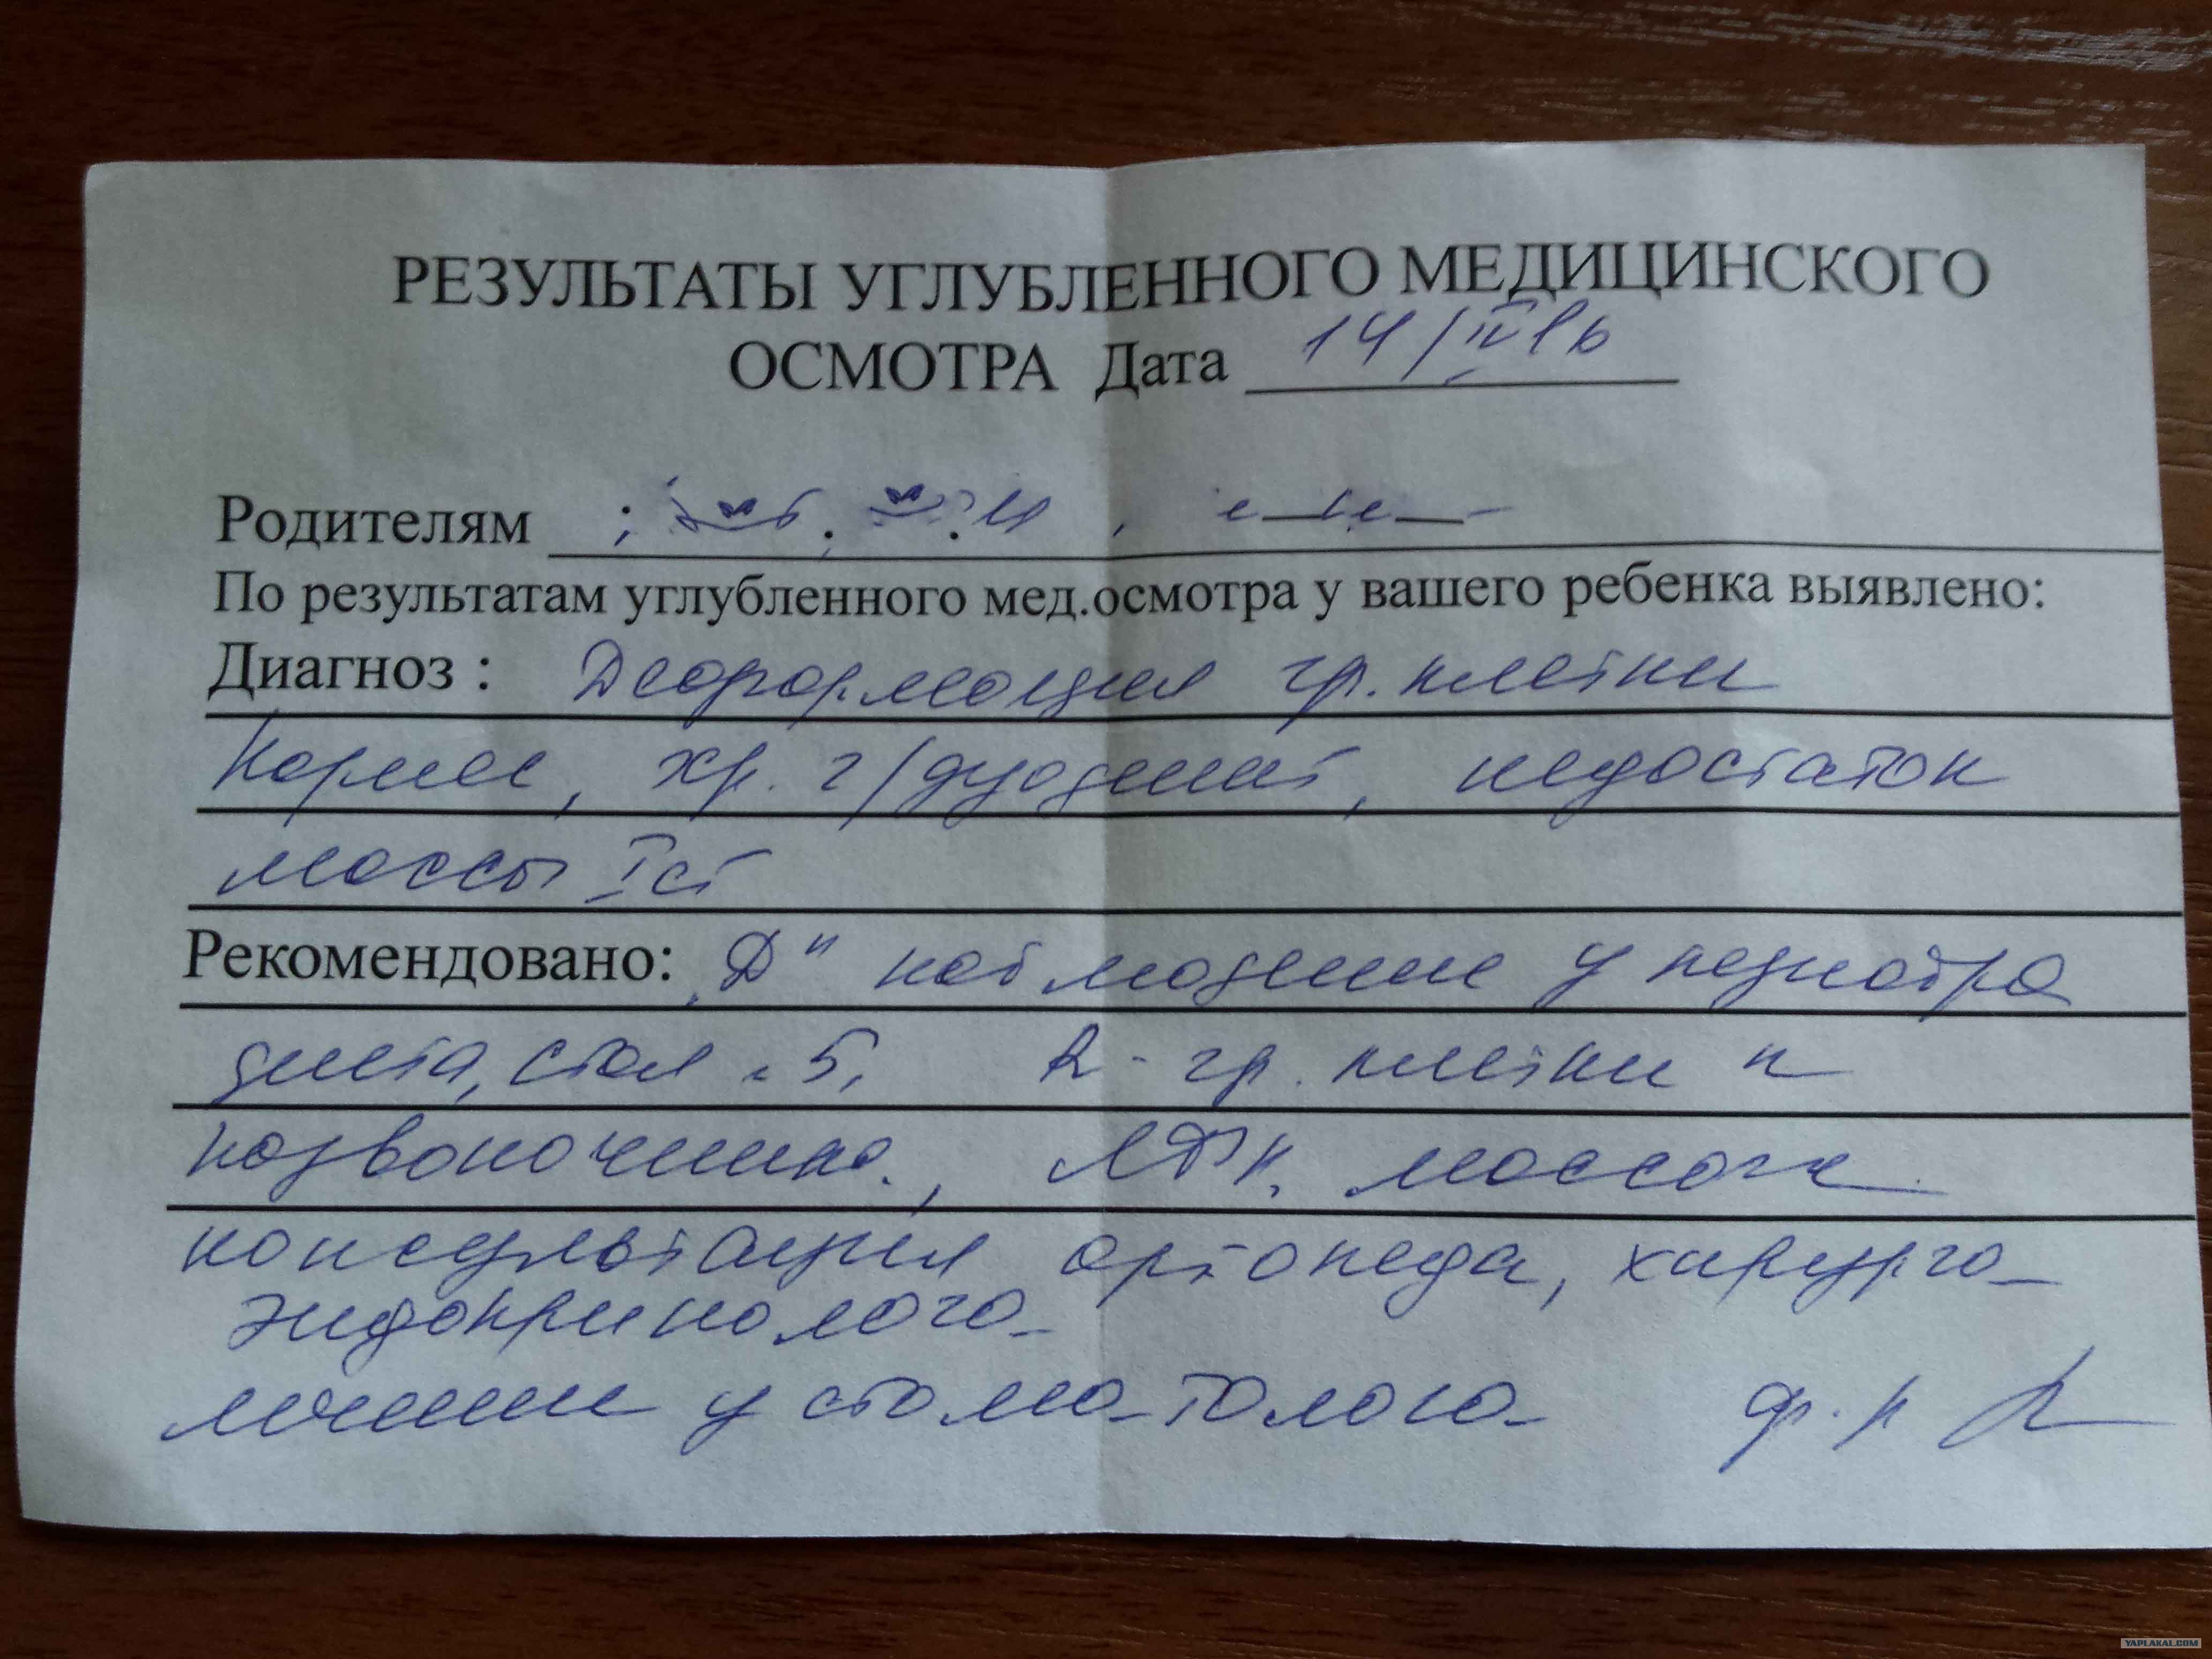 РЕЗУЛЬТАТЫ УГЛУБЛЕННОГО МЕДИЦИНСКОГО
ОСМОТРА Дата 14/IV 16
Родителям
По результатам углубленного мед.осмотра у вашего ребенка выявлено:
Диагноз : Деформация гр. клетки
хр. г/дуоденит, недостаток
массы I ст
Рекомендовано: "Д" наблюдение у педиатра
диета, стол 5, R - гр. клетки и
позвоночника, ЛФК, массаж
консультация ортопеда, хирурга
эндокринолога
лечение у стоматолога
YAPLAKAL.COM